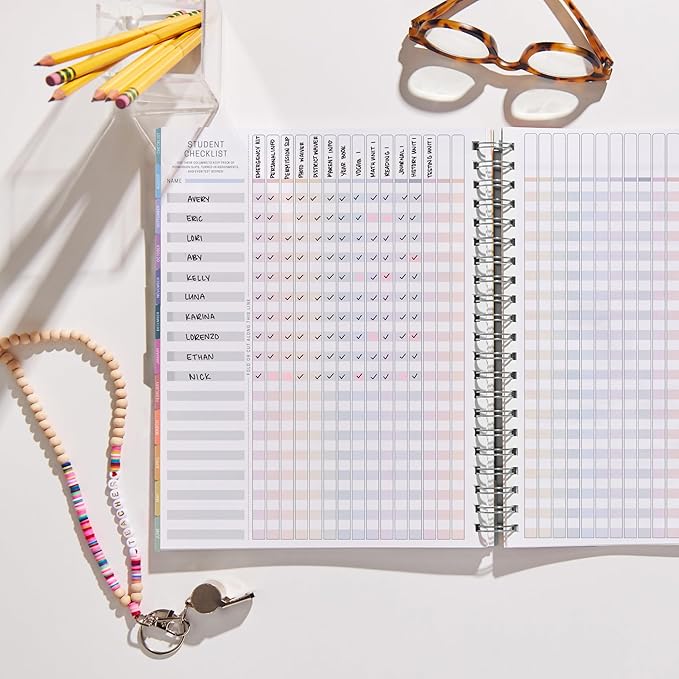 STUDENT
CHECKLIST
NAME
EMERGENCY KIT
PERSONAL INFO
PERMISSION SLIP
PHOTO WAIVER
DISTRICT WAIVER
PARENT INFO
YEAR BOOK
VOCAB 1
MATH UNIT 1
READING 1
JOURNAL 1
HISTORY UNIT 1
TESTING UNIT 1
AVERY
ERIC
LORI
ABY
KELLY
LUNA
KARINA
LORENZO
ETHAN
NICK
FOLD OR CUT ALONG THIS LINE
AUGUST
SEPTEMBER
OCTOBER
NOVEMBER
DECEMBER
JANUARY
FEBRUARY
MARCH
APRIL
MAY
JUNE
TEACHER